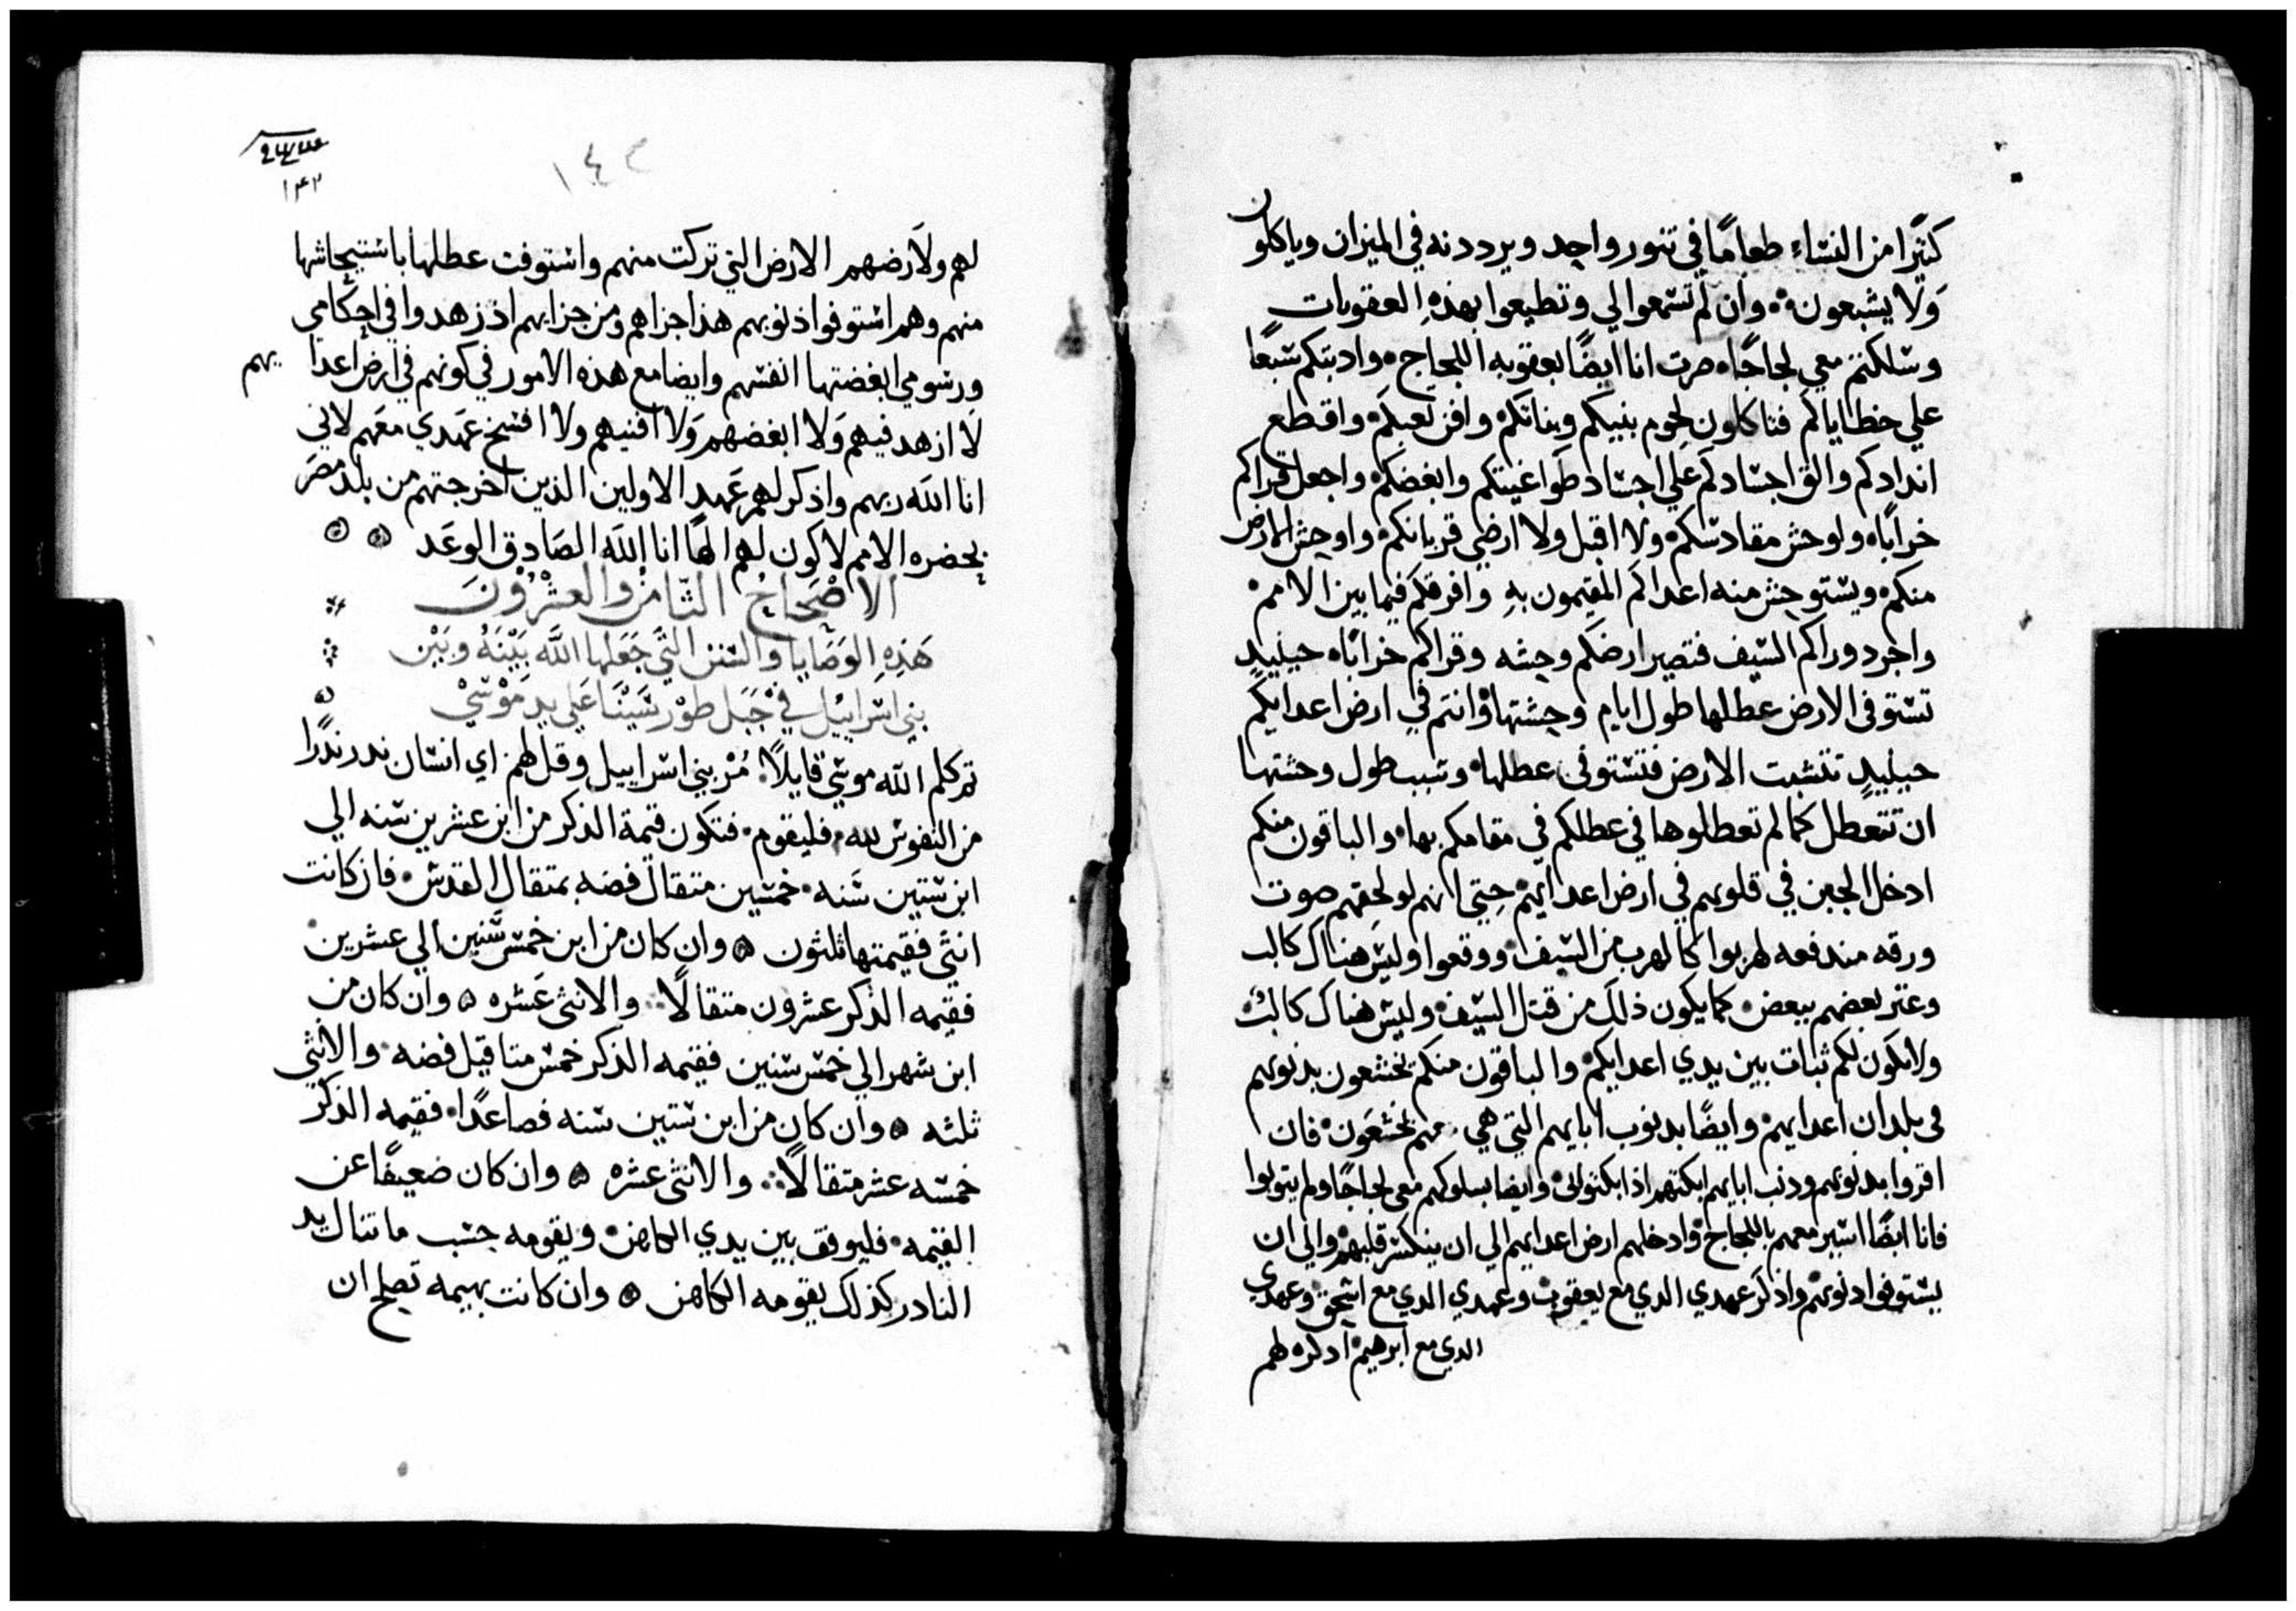 كثيرًا من النساء طعامًا في تنور واحد ويرددنه في الميزان وياكلون
وَلا يشبعون وان لم تسمعوا لي وتطيعوا بهذهِ العقوبات
وسلكتم معي لجاجًا صرت انا ايضًا بعقوبه اللجاج وادبتكم سبعًا
علي خطاياكم فتاكلون لحوم بنيكم وبناتكم وافني واقطع
اندادكم والق اجسادكم عَلي اجساد طواغيتكم وابغضكم واجعل قراكم
خرابًا واوحش مقادسكم ولا اقبل ولا ارضي قربانكم واوحش الارض
منكم ويستوحش منه اعداكم المقيمون بهِ وافرقكم فيما بين الامم
واجرد وراكم السيف فتصير ارضكم وحشه وقراكم خرابًا حينيدٍ
تستوفي الارض عطلها طول ايام وحشتها وانتم في ارض اعدايكم
حينيدٍ تتشبت الارض فتستوفي عطلها وسبب طول وحشتها
ان تتعطل كما لم تعطلوها في عطلكم في مقامكم بها والباقون منكم
ادخل الجبن في قلوبهم في ارض اعدايهم حتي انهم لو لحقهم صوت
ورقه مندفعه لهربوا كالهرب من السيف ووقعوا وليس هناك كالب
وعتر بعضهم ببعض كما يكون ذلك من قتل السيف وليس هناك كالب
ولا يكون لكم ثبات بين يدي اعدايكم والباقون منكم يخشعون بدنوبهم
في بلدان اعدايهم وايضًا بدنوب ابايهم التي هي معهم يخشعَون فان
اقروا بدنوبهم ودنب ابايهم وايضا بسلوكهم معي لجاجًا ولم يتوبوا
فانا ايضًا اسير معهم باللجاج وادخلهم ارض اعدايهم الي ان ينكسر قلبهم والي ان
يستوفوا دنوبهم واذكر عهدي الدي مع يعقوب وعهدي الدي مع اسحق وعهدي
الدي مع ابرهيم اذكره لهم
١٤٢
١٤٢
لهم ولارضهم الارض التي تركت منهم واستوفت عطلها باستيحاشها
منهم وهم استوفوا ذنوبهم هذا جزاهم ومن جزايهم اذ زهدوا في احكامي
ورسومي ابغضتها انفسهم وايضا مع هذه الامور في كونهم في ارض اعدايهم
لا ازهد فيهم وَلا ابغضهم وَلا افنيهم ولا افسخ عَهدي معَهم لاني
انا الله ربهم واذكر لهم عَهد الاولين الذين اخرجتهم من بلد مصَر
بحضره الامم لاكون لهم الهًا انا الله الصَادق الوعَد
الاصْحَاحُ الثَامنُ والعشْرُوْنَ
هَذِهِ الوَصَايا والسُنن التي جَعَلها اللَّه بَيْنَهُ وبَيْن
بني اسْراييْل في جَبَل طوْر سَيْنَا عَلي يدِ مَوْسَيْ
تم كلم الله موسي قايلاً مُرْ بني اسراييل وقل لهم اي انسان ندر ندرًا
من النفوس لله فليقوم فتكون قيمة الدكر من ابن عشرين سنه الي
ابن ستين سَنه خمسين متقال فضه بمتقال القدس فان كانت
انثي فقيمتها ثلثون وان كان من ابن خمس سَنين الي عشرين
فقيمه الدكر عشرون متقالًا والانثي عَشره وان كان من
ابن شهر الي خمس سنين فقيمه الدكر خمس متاقيل فضه والانثي
ثلثه وان كان من ابن ستين سنه فصاعدًا فقيمه الدكر
خمسه عشر متقالًا والانثي عشره وان كان ضعيفًا عن
القيمه فليوقف بين يدي الكاهن ويقومه حسب ما تنال يد
النادر كذلك يقومه الكاهن وان كانت بهيمه تصلح ان